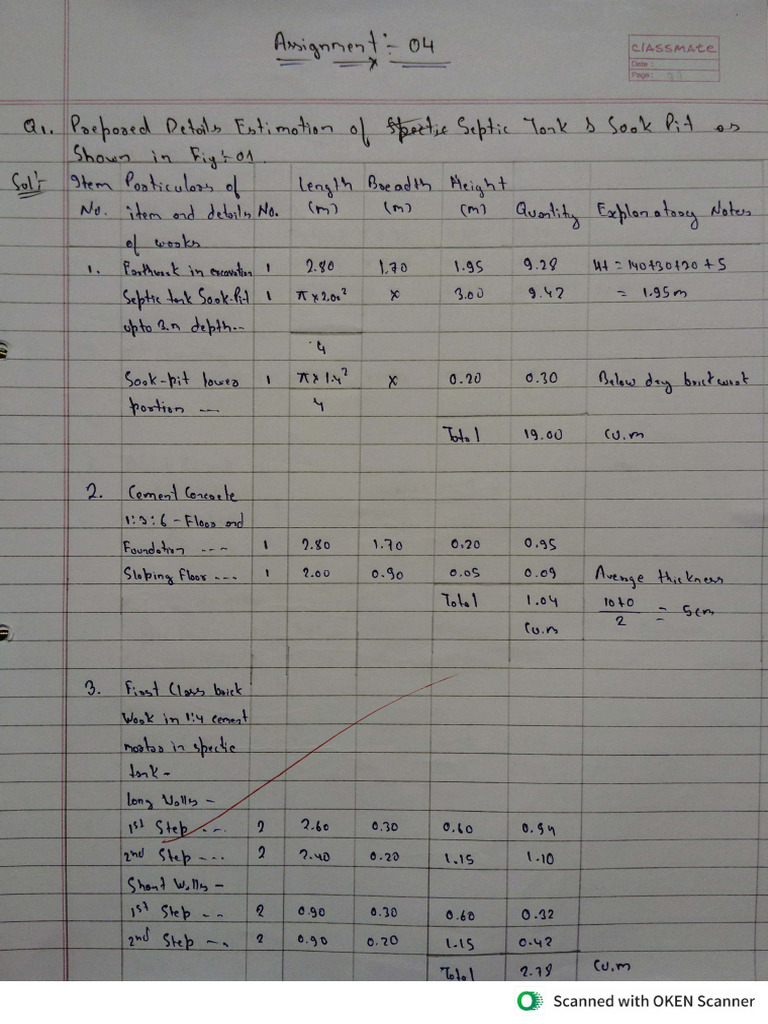 Assignment :- 04
classmate
Date :
Page :
Q1. Prepared Details Estimation of Septic Tank & Soak Pit as
Shown in Fig :- 01.
Sol :-
Item Particulars of Length Breadth Height
No. item and details No. (m) (m) (m) Quantity Explanatory Notes
of works
1. Earthwork in excavation 1 2.80 1.70 1.95 9.28 Ht = 140+30+20+5
Septic tank Soak-Pit 1 π x 2.00² x 3.00 9.42 = 1.95m
upto 3.n depth--
4
Soak-pit lower 1 π x 1.4² x 0.20 0.30 Below dry brickwork
portion --- 4
Total 19.00 cu.m
2. Cement Concrete
1:3:6 - Floor and
Foundation --- 1 2.80 1.70 0.20 0.95
Sloping Floor --- 1 2.00 0.90 0.05 0.09 Average thickness
Total 1.04 10+0
Cu.m 2 = 5cm
3. First Class brick
Work in 1:4 cement
mortar in spectic
tank -
Long Walls -
1st Step --- 2 2.60 0.30 0.60 0.94
2nd Step --- 2 2.40 0.20 1.15 1.10
Short Walls -
1st Step -- 2 0.90 0.30 0.60 0.32
2nd Step -- 2 0.90 0.20 1.15 0.42
Total 2.78 Cu.m
Scanned with OKEN Scanner